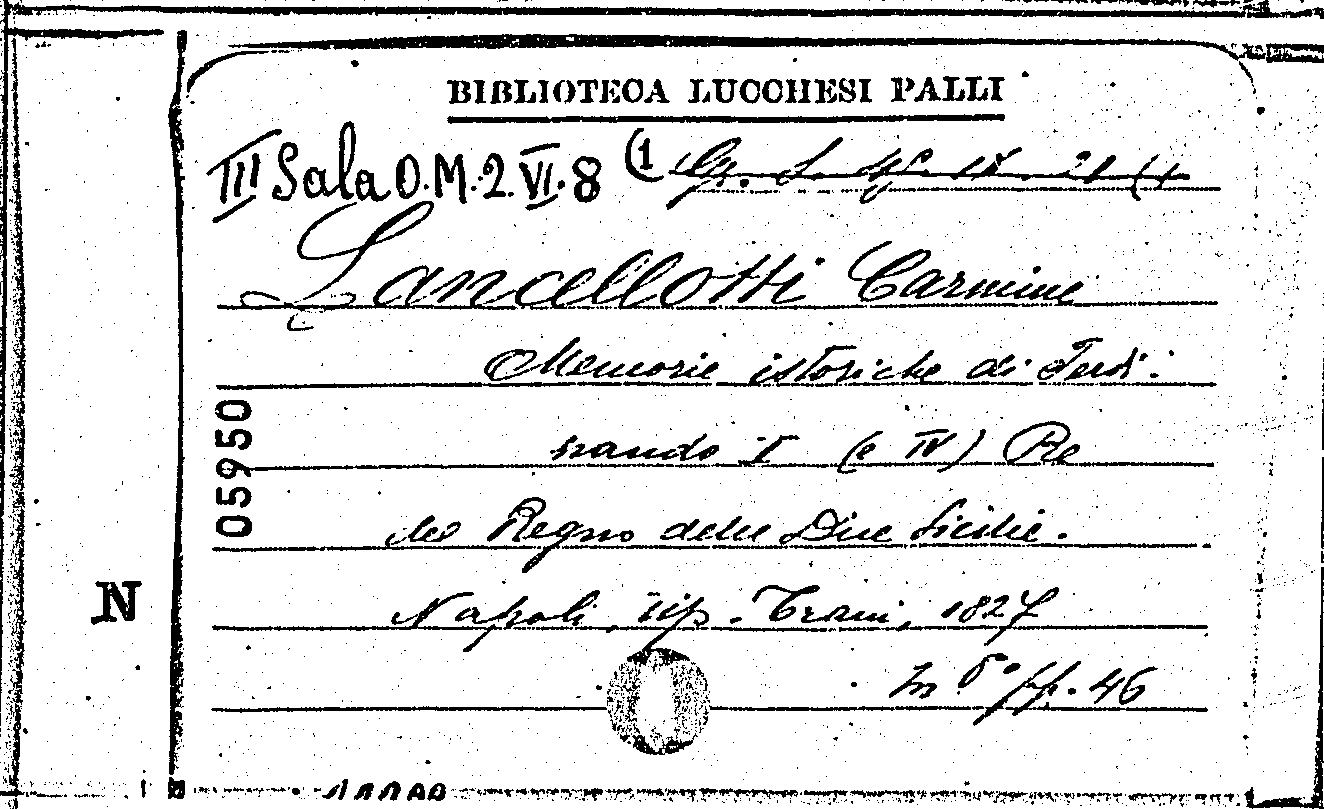 BIBLIOTECA LUCCHESI PALLI
III Sala O.M.2.VI.8 (1
Lancellotti Carmine
Memorie istoriche di Ferdi-
nando I (e IV) Re
del Regno delle Due Sicilie.
Napoli, tip. Trani, 1827
In 8° pp. 46
05950
N